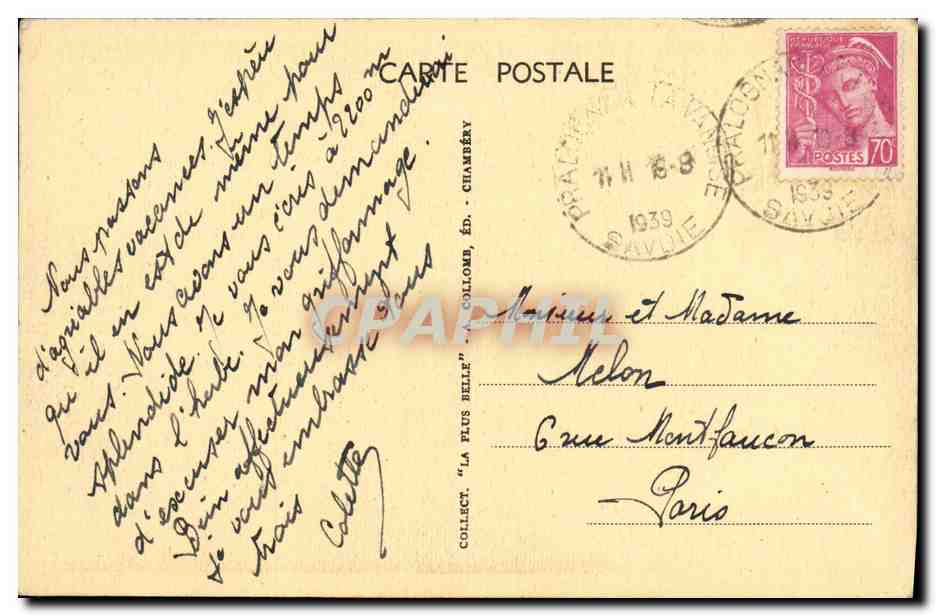 CARTE POSTALE
Nous passons
d'agréables vacances, j'espère
qu'il en est de même pour
vous. Nous avons un temps
splendide. Je vous écris à 2200 m
dans l'herbe. Je vous demanderai
d'excuser mon griffonnage.
Bien affectueusement
je vous embrasse tous
trois
Colette
COLLECT. "LA PLUS BELLE" - A COLLOMB, ÉD. - CHAMBÉRY
PRALOGNAN LA VANOISE
1939
SAVOIE
PRALOGNAN
1939
SAVOIE
REPUBLIQUE
FRANÇAISE
POSTES 70c
Monsieur et Madame
Melon
6 rue Montfaucon
Paris
CPAPHIL